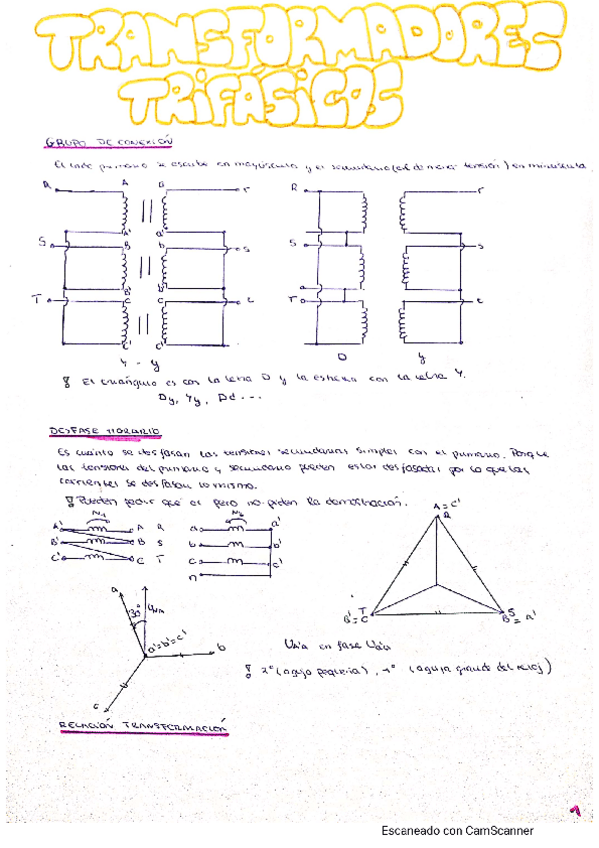 TRANSFORMADORES
TRIFÁSICOS
GRUPO DE CONEXIÓN
El lado primario se escribe en mayúscula y el secundario (el de menor tensión) en minúscula
R A a r
A' a'
S B b s
B' b'
T C c t
C' c'
Y - y
R r
S s
T t
D y
El triángulo es con la letra D y la estrella con la letra Y.
Dy, Yy, Dd...
DESFASE HORARIO
Es cuánto se desfasan las tensiones secundarias simples con el primario. Porque
las tensiones del primario y secundario pueden estar desfasadas por lo que las
corrientes se desfasan lo mismo.
Pueden pedir que es pero no piden la demostración.
N1 N2
A' A R a a'
B' B S b b'
C' C T c c'
n
A=C'
R
T S
B'=C B=A'
a 30° a'=b'=c' b
c
en fase
(aguja pequeña), (aguja grande del reloj)
RELACIÓN TRANSFORMACIÓN
1
Escaneado con CamScanner